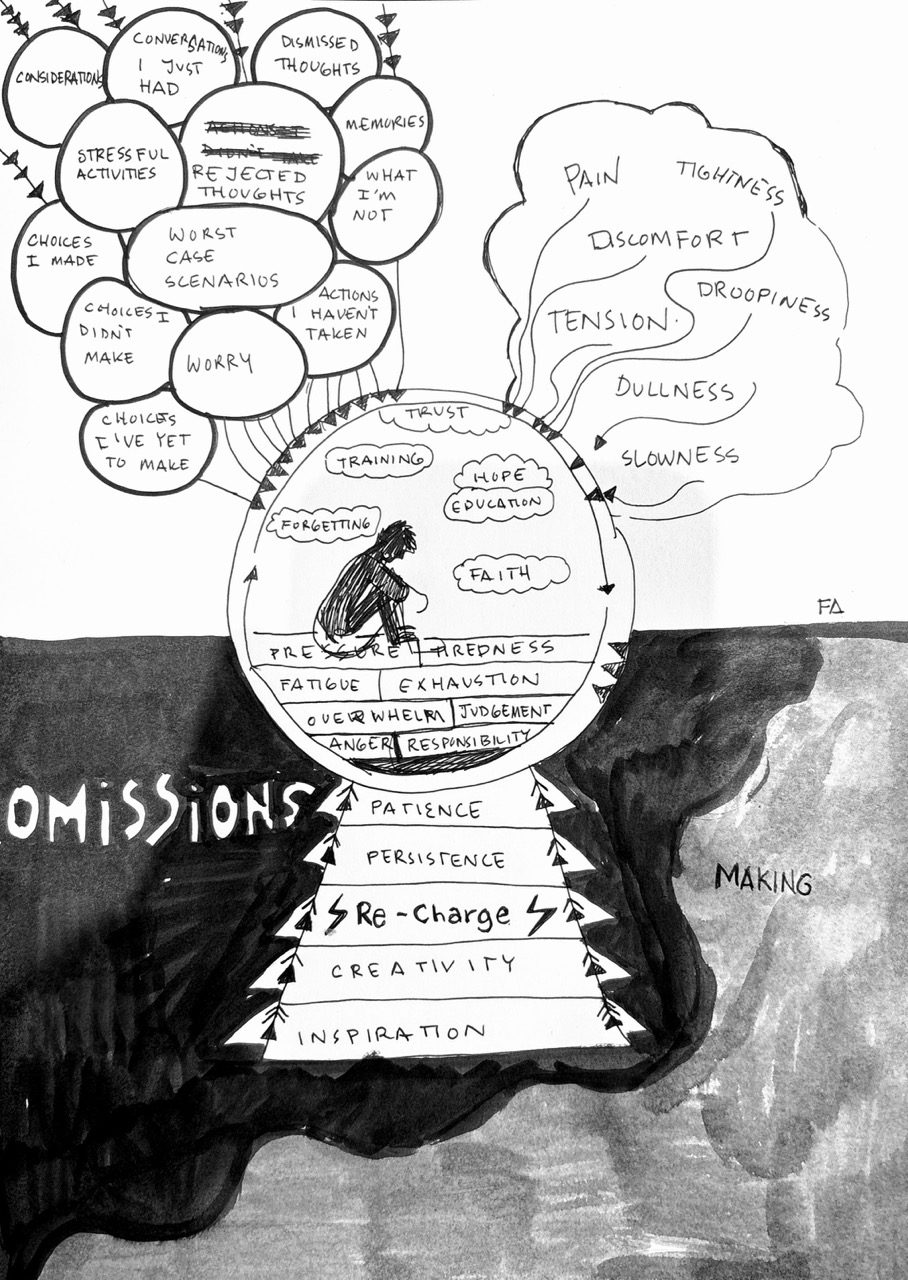 CONSIDERATIONS
CONVERSATIONS
I JUST
HAD
DISMISSED
THOUGHTS
STRESSFUL
ACTIVITIES
ACTIONS I
DIDN'T TAKE
REJECTED
THOUGHTS
MEMORIES
WHAT
I'M
NOT
CHOICES
I MADE
WORST
CASE
SCENARIOS
CHOICES I
DIDN'T
MAKE
WORRY
ACTIONS
I HAVEN'T
TAKEN
CHOICES
I'VE YET
TO MAKE
PAIN
TIGHTNESS
DISCOMFORT
DROOPINESS
TENSION
DULLNESS
SLOWNESS
TRUST
TRAINING
HOPE
EDUCATION
FORGETTING
FAITH
FA
PRESSURE TIREDNESS
FATIGUE EXHAUSTION
OVERWHELM JUDGEMENT
ANGER RESPONSIBILITY
OMISSIONS
PATIENCE
PERSISTENCE
Re-Charge
CREATIVITY
INSPIRATION
MAKING